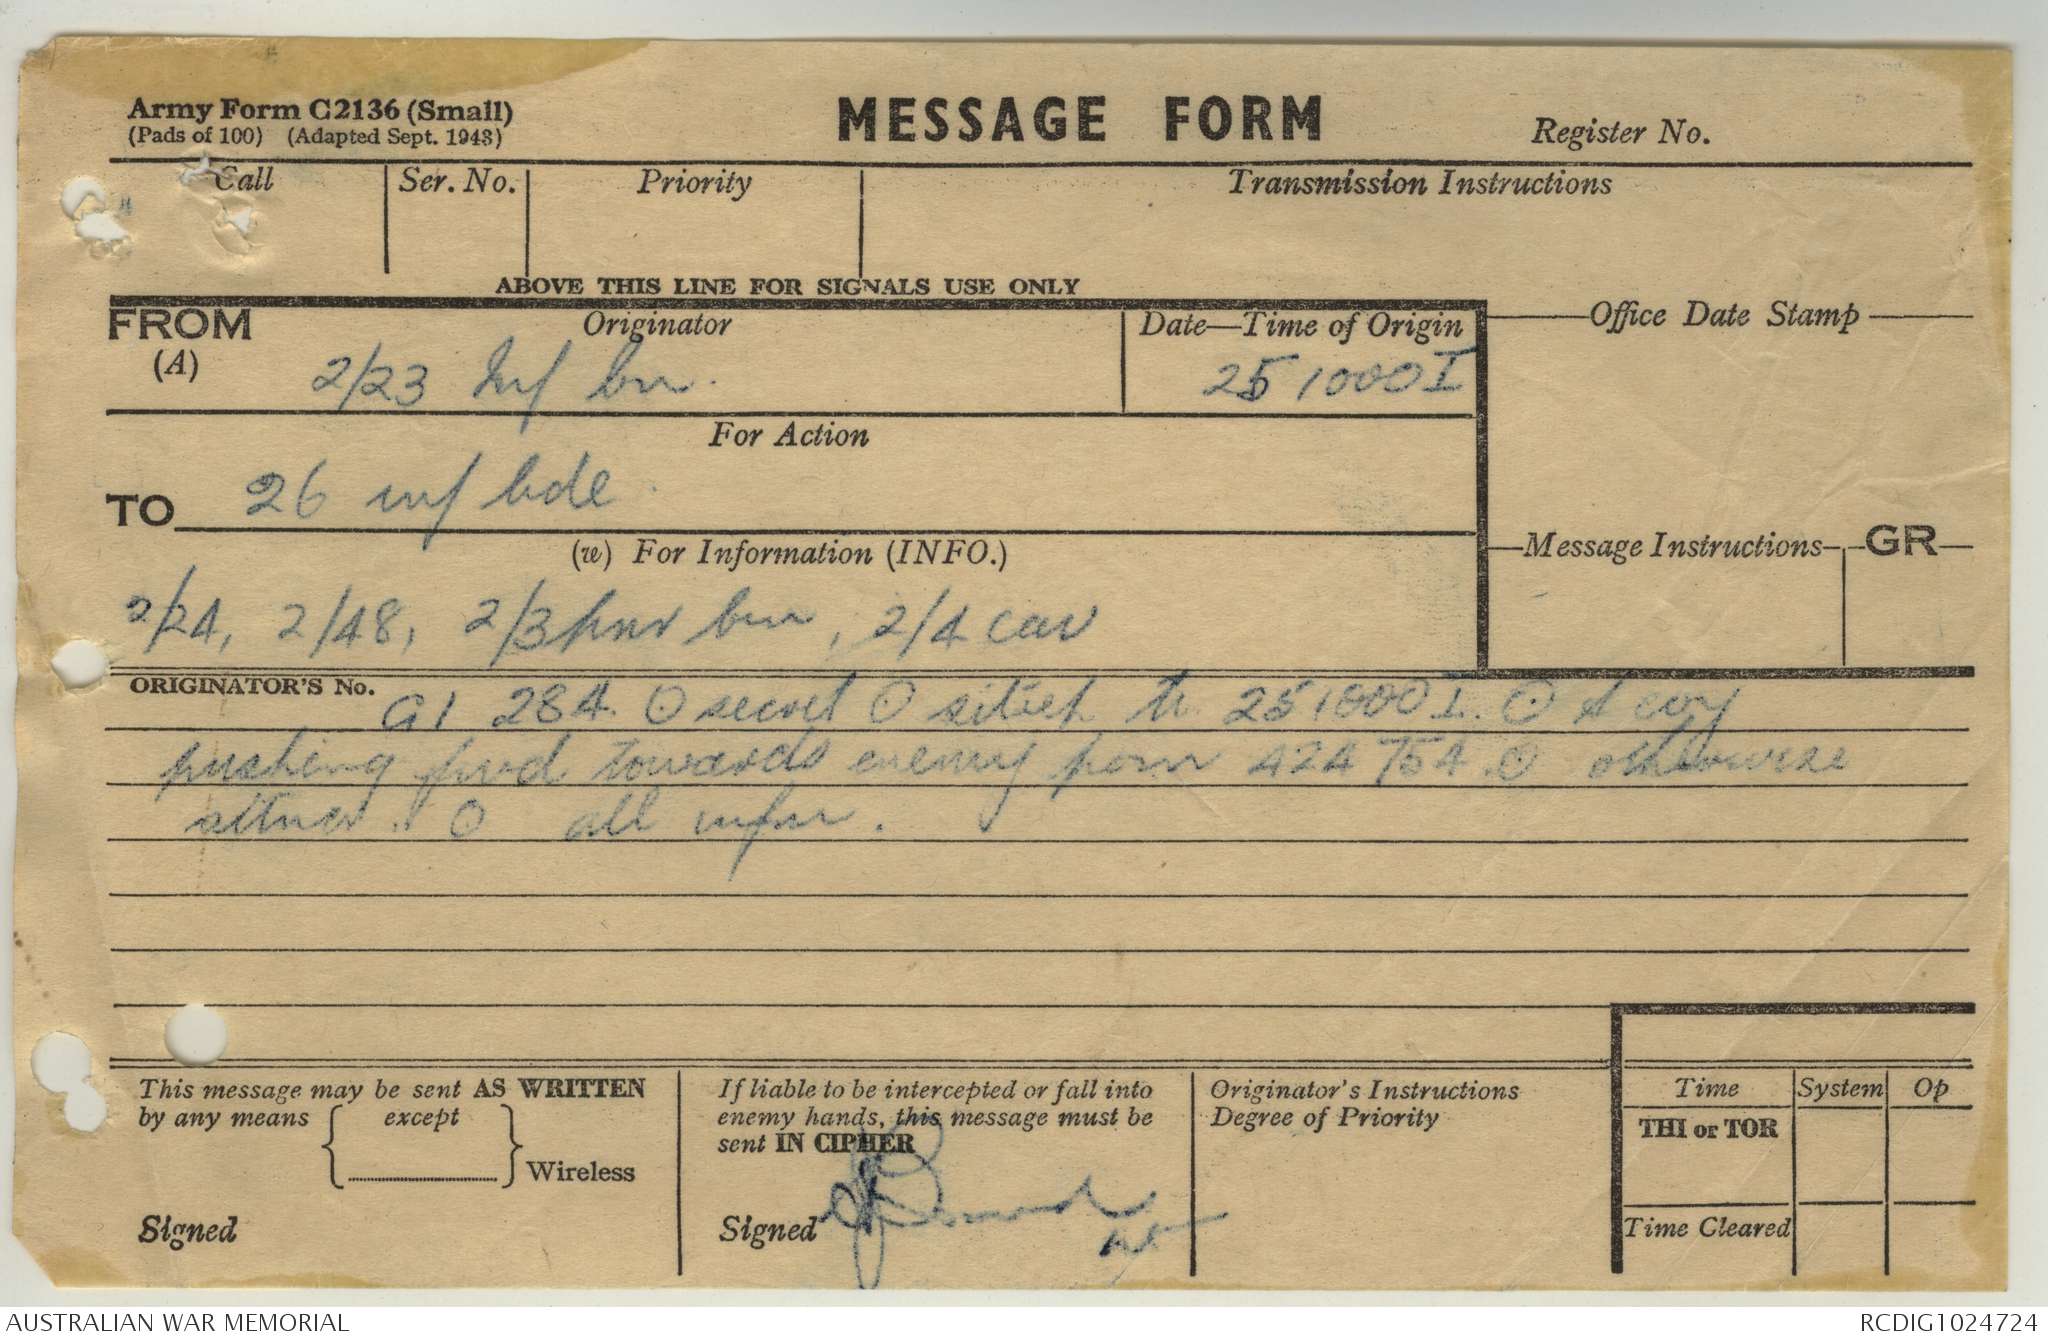 Army Form C2136 (Small)
(Pads of 100) (Adapted Sept. 1943)
MESSAGE FORM
Register No.
Call
Ser. No.
Priority
Transmission Instructions
ABOVE THIS LINE FOR SIGNALS USE ONLY
FROM
(A)
Originator
2/23 Inf bn.
Date—Time of Origin
251000I
Office Date Stamp
For Action
TO
26 inf bde
Message Instructions
GR
(w) For Information (INFO.)
2/24, 2/48, 2/3 pnr bn, 2/4 cav
ORIGINATOR'S No.
G1 284. O secret O sitrep to 251000I. O A coy
pushing fwd towards enemy posn 424754. O otherwise
O all infm.
This message may be sent AS WRITTEN
by any means
except
Wireless
Signed
If liable to be intercepted or fall into
enemy hands, this message must be
sent IN CIPHER
Signed
Originator's Instructions
Degree of Priority
Time
System
Op
THI or TOR
Time Cleared
AUSTRALIAN WAR MEMORIAL
RCDIG1024724